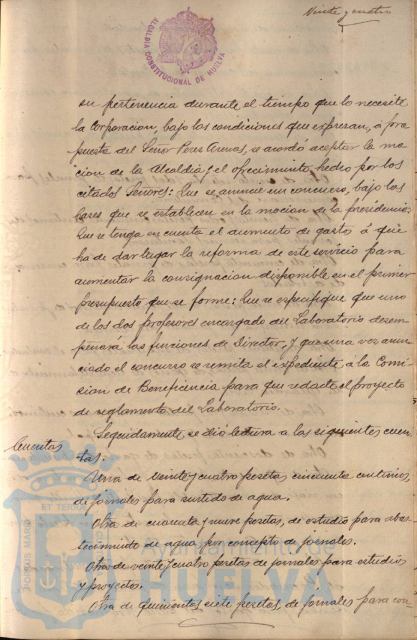 Veinte y cuatro
ALCALDIA CONSTITUCIONAL DE HUELVA
su pertenencia durante el tiempo que lo necesite
la Corporacion, bajo las condiciones que expresan, á pro
puesta del Señor Perez Armas, se acordó aceptar la mo
cion de la Alcaldia y el ofrecimiento hecho por los
citados Señores: Que se anuncie un concurso, bajo las
bases que se establecen en la mocion de la presidencia
Que se tenga en cuenta el aumento de gasto á que
ha de dar lugar la reforma de este servicio para
aumentar la consignacion disponible en el primer
presupuesto que se forme: Que se especifique que uno
de los dos profesores encargado del Laboratorio desem
peñará las funciones de Director, y que una vez anun
ciado el concurso se remita el expediente á la Comi
sion de Beneficencia para que redacte el proyecto
de reglamento del Laboratorio.
Cuentas
Seguidamente se dió lectura a las siguientes cuen
tas.
Una de veinte y cuatro pesetas cincuenta centimos,
de jornales para surtido de agua.
Otra de cuarenta y nueve pesetas, de estudio para abas
tecimiento de agua por concepto de jornales.
Otra de veinte y cuatro pesetas de jornales para estudios
y proyectos.
Otra de quinientas siete pesetas, de jornales para con
PORTUS MARIS ET TERRAE
Ayuntamiento de
HUELVA